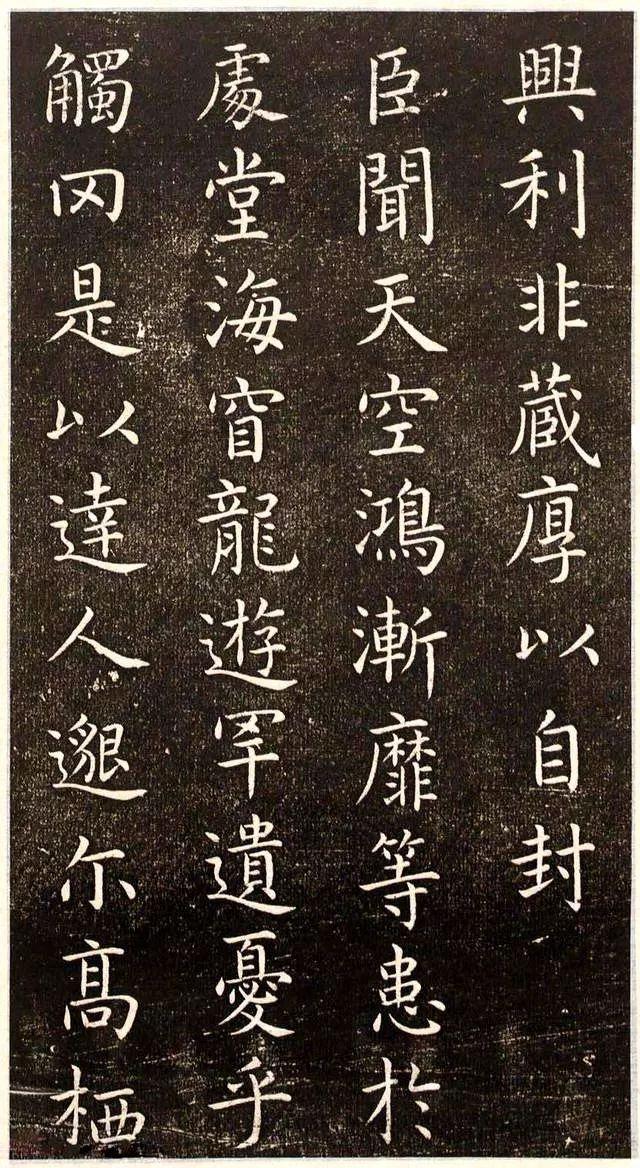 興利非蔵厚以自封
臣聞天空鴻漸靡等患於
處堂海窅龍遊罕遺憂乎
觸罔是以達人邈尔髙栖